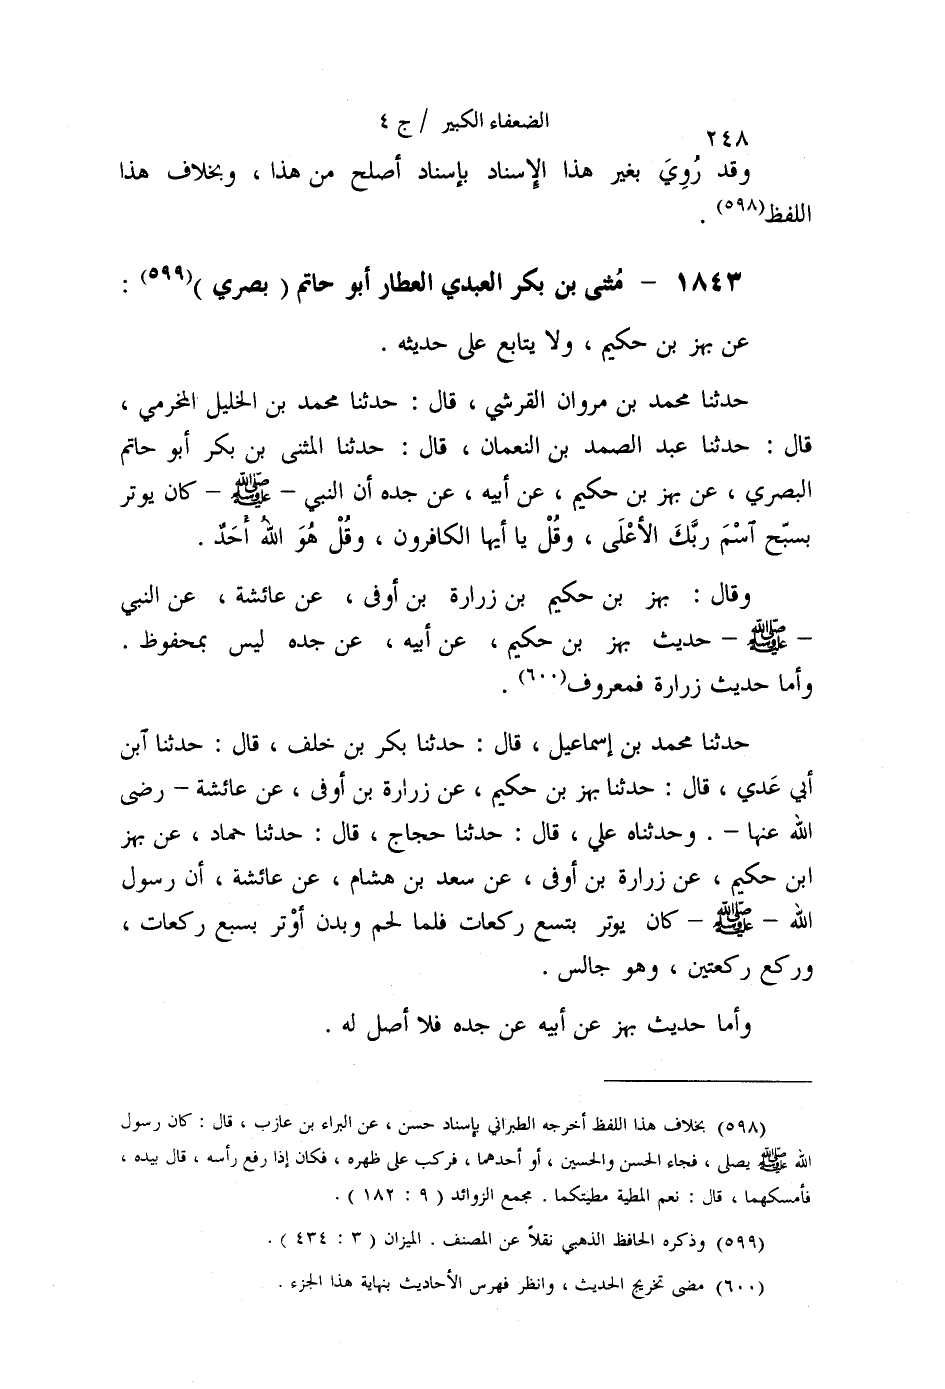 الضعفاء الكبير / ج ٤
٢٤٨
وقد رُوِيَ بغير هذا الإسناد بإسناد أصلح من هذا ، وبخلاف هذا
اللفظ(٥٩٨) .
١٨٤٣ – مُثنى بن بكر العبدي العطار أبو حاتم ( بصري )(٥٩٩) :
عن بهز بن حكيم ، ولا يتابع على حديثه .
حدثنا محمد بن مروان القرشي ، قال : حدثنا محمد بن الخليل المخرمي ،
قال : حدثنا عبد الصمد بن النعمان ، قال : حدثنا المثنى بن بكر أبو حاتم
البصري ، عن بهز بن حكيم ، عن أبيه ، عن جده أن النبي – ﷺ – كان يوتر
بسبّح ٱسْمَ ربَّكَ الأعْلَى ، وقُلْ يا أيها الكافرون ، وقُلْ هُوَ اللهُ أَحَدٌ .
وقال : بهز بن حكيم بن زرارة بن أوفى ، عن عائشة ، عن النبي
– ﷺ – حديث بهز بن حكيم ، عن أبيه ، عن جده ليس بمحفوظ .
وأما حديث زرارة فمعروف(٦٠٠) .
حدثنا محمد بن إسماعيل ، قال : حدثنا بكر بن خلف ، قال : حدثنا ٱبن
أبي عَدي ، قال : حدثنا بهز بن حكيم ، عن زرارة بن أوفى ، عن عائشة – رضى
الله عنها – . وحدثناه علي ، قال : حدثنا حجاج ، قال : حدثنا حماد ، عن بهز
ابن حكيم ، عن زرارة بن أوفى ، عن سعد بن هشام ، عن عائشة ، أن رسول
الله – ﷺ – كان يوتر بتسع ركعات فلما لحم وبدن أوْتر بسبع ركعات ،
وركع ركعتين ، وهو جالس .
وأما حديث بهز عن أبيه عن جده فلا أصل له .
(٥٩٨) بخلاف هذا اللفظ أخرجه الطبراني بإسناد حسن ، عن البراء بن عازب ، قال : كان رسول
الله ﷺ يصلى ، فجاء الحسن والحسين ، أو أحدهما ، فركب على ظهره ، فكان إذا رفع رأسه ، قال بيده ،
فأمسكهما ، قال : نعم المطية مطيتكما . مجمع الزوائد ( ٩ : ١٨٢ ) .
(٥٩٩) وذكره الحافظ الذهبي نقلاً عن المصنف . الميزان ( ٣ : ٤٣٤ ) .
(٦٠٠) مضى تخريج الحديث ، وانظر فهرس الأحاديث بنهاية هذا الجزء .